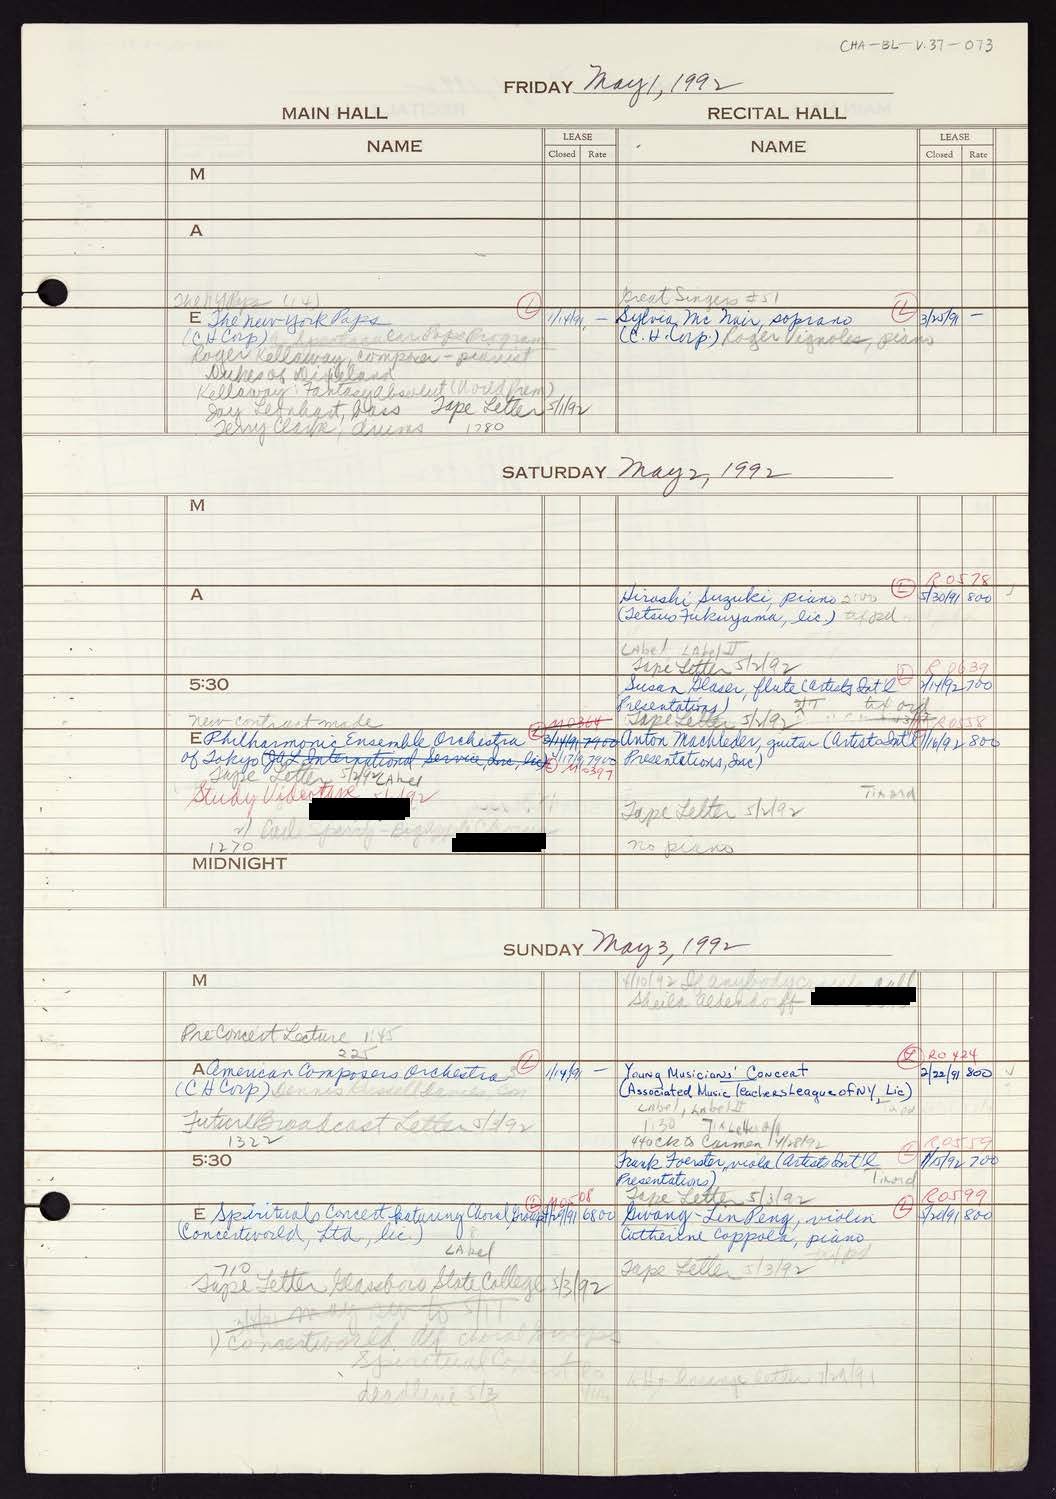 CHA-BL-V.37-073
FRIDAY May 1, 1992
MAIN HALL
RECITAL HALL
NAME
LEASE
Closed Rate
NAME
LEASE
Closed Rate
M
A
The NY Pops (14)
E The New York Pops 1/14/91 -
(CH Corp)
Roger Kellaway, composer - pianist
Dukes of Dixieland
Kellaway: Fantasy Absolut (World Prem)
Jay Leonhart, bass Tape Letter 5/1/92
Terry Clarke, drums 1780
Great Singers #51
L
Sylvia McNair, soprano 3/25/91 -
(C.H. Corp.) Roger Vignoles, piano
SATURDAY May 2, 1992
M
A
R0578
L
Hiroshi Suzuki, piano 2:00 5/30/91 800
(Tetsuo Fukuyama, lic.)
Label Label II
Tape Letter 5/2/92
5:30
R0639
Susan Glaser, flute (Artists Int'l 2/14/92 700
Presentations)
Tape Letter 5/2/92
new contract made
M0364
E Philharmonic Ensemble Orchestra 3/14/91 7900
of Tokyo (J&L International Service, Inc, lic) 7900
M0397
Tape Letter 5/2/92 Label
Study Videotape 5/2/92
2)
1270
R0558
Anton Machleder, guitar (Artists Int'l 1/16/92 800
Presentations, Inc)
Tix ord
Tape Letter 5/2/92
no piano
MIDNIGHT
SUNDAY May 3, 1992
M
4/10/92 If anybody cancels call
Sheila Aldendorff
PreConcert Lecture 1:45
225
A American Composers Orchestra 1/14/91 -
(CH Corp) Dennis Russell Davies, con
Future Broadcast Letter 5/3/92
1322
R0424
L
Young Musicians' Concert 2/22/91 800
(Associated Music Teachers League of NY, Lic)
Label, Label II
1:30
440 ck to Carmen 4/28/92
5:30
R0559
Frank Foerster, viola (Artists Int'l 1/15/92 700
Presentations) Tix ord
Tape Letter 5/3/92
M0508
E Spirituals Concert featuring Choral Groups 6800
(Concertworld, Ltd, lic.)
Label
710
Tape Letter Glassboro State College 5/3/92
1) Concertworld
Spiritual Concert
deadline 5/3
R0599
L
Gwang-Lin Peng, violin 800
Catherine Coppola, piano
Tape Letter 5/3/92